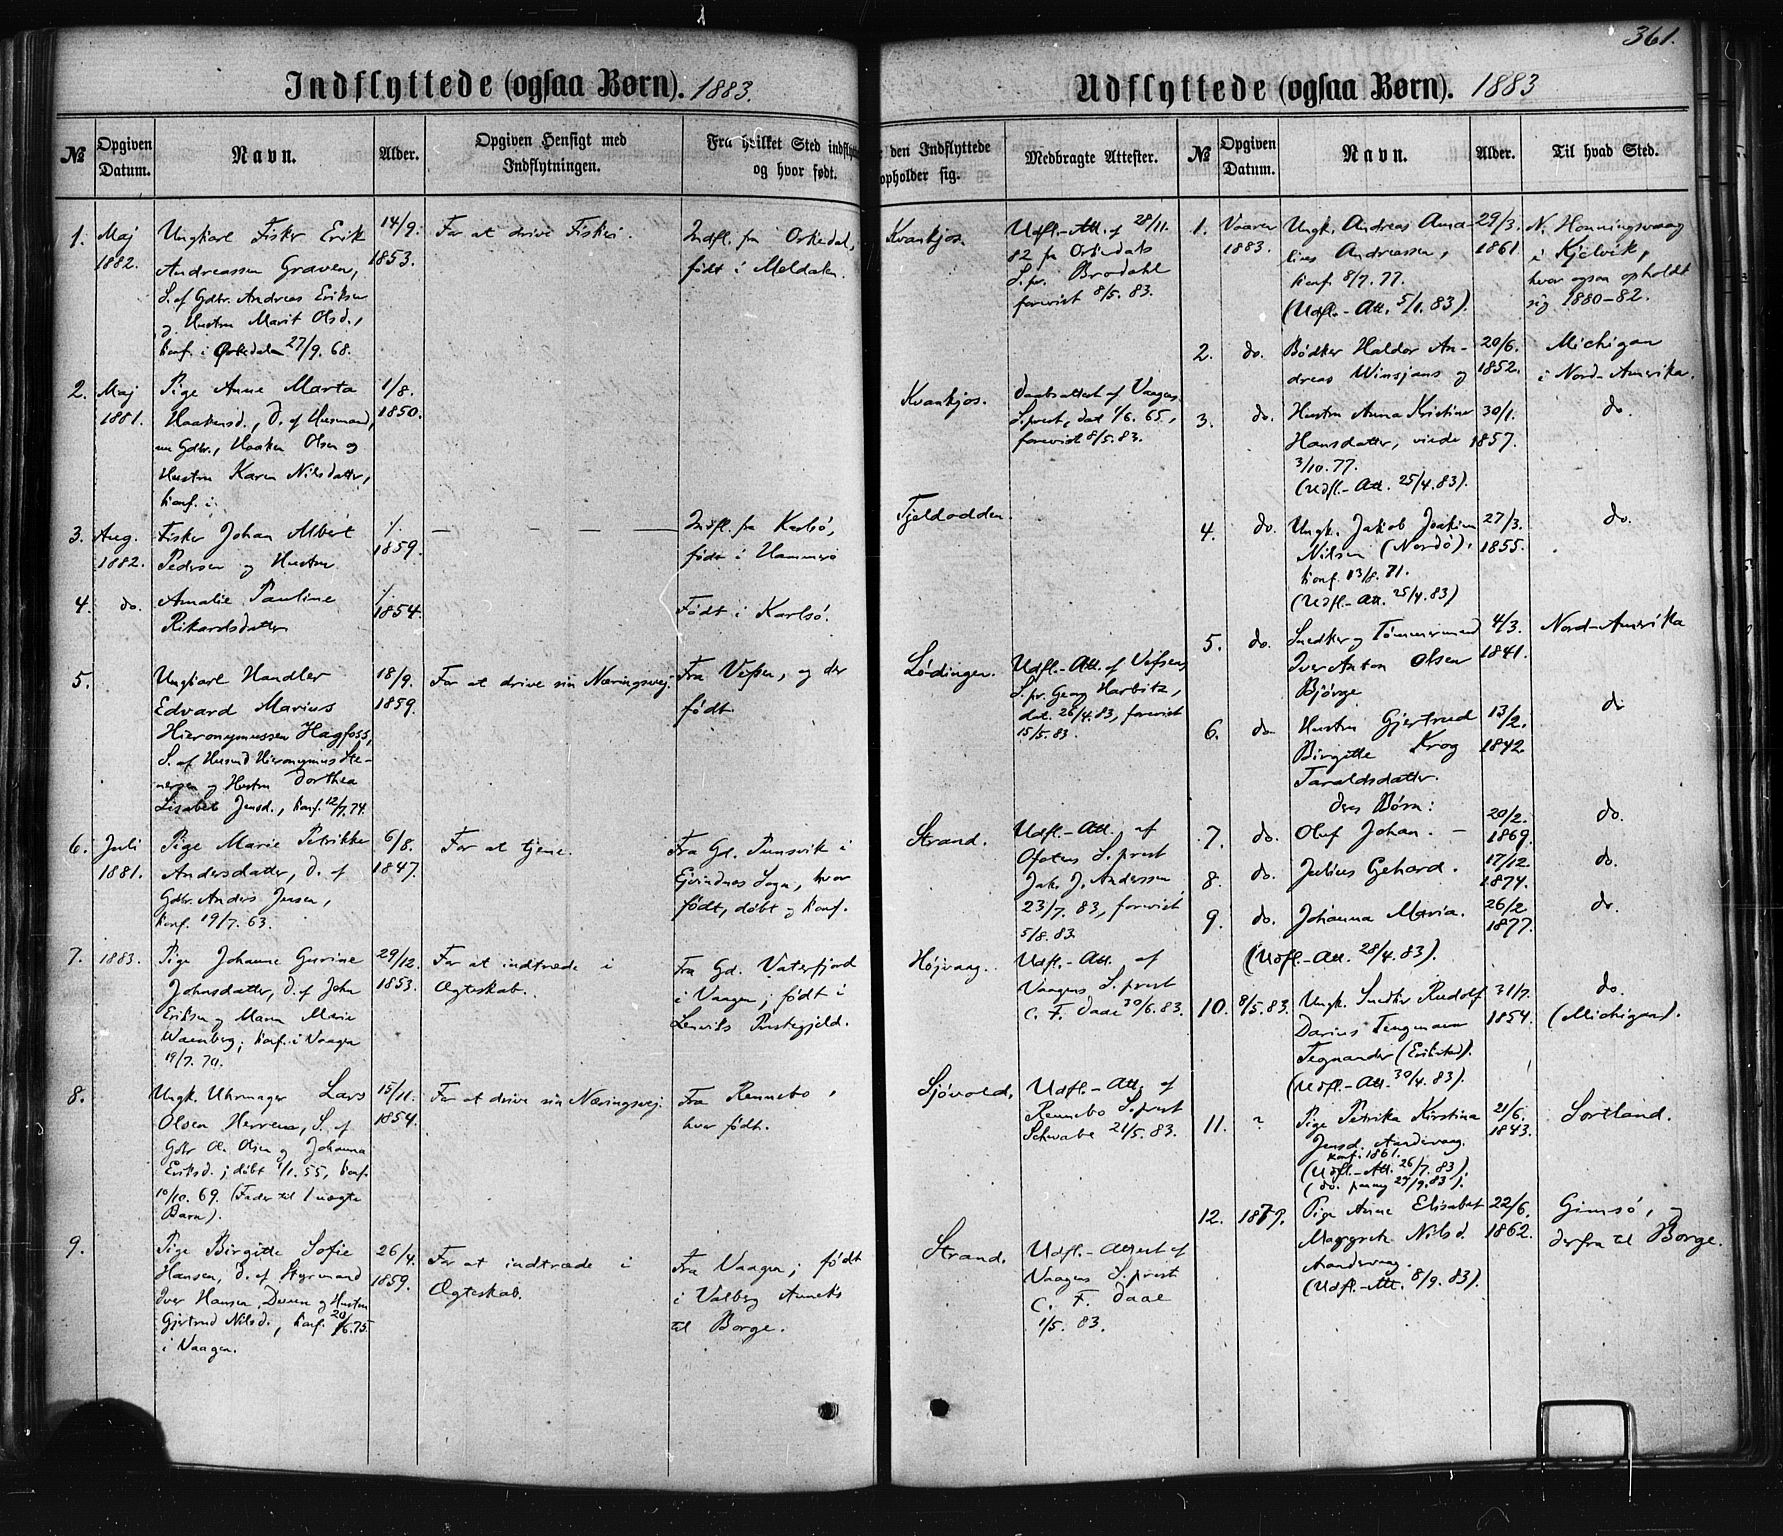 361.
Indflyttede (ogsaa Børn). 1883.
№
Opgiven Datum.
Navn.
Alder.
Opgiven Hensigt med Indflytningen.
Fra hvilket Sted indflyt
og hvor født.
den Indflyttede
opholder sig.
Medbragte Attester.
1. Maj 1882.
Ungkarl Fisker Erik
Andreassen Graven,
S. af Gdbr. Andreas Eriksen
og Hustru Marit Olsd.,
konf. i Orkedalen 27/9. 68.
14/9. 1853.
For at drive Fiskeri.
Indfl. fra Orkedal,
født i Meldalen.
Kvankjos.
Udfl.-Att. af 28/11.
82 fra Orkedals
S. pr. Brodahl
forevist 8/5. 83.
2. Maj 1881.
Pige Anne Marta
Haakensd., D. af Husmand,
nu Gdbr., Haaken Olsen og
Hustru Karen Nilsdatter,
konf. i
1/8. 1850.
Kvankjos.
Daabsattest af Vaagens
S.prest, dat. 1/6. 65,
forevist 8/5. 83.
3. Aug. 1882.
Fisker Johan Albert
Pedersen og Hustru
1859.
— — — —
Indfl. fra Karlsø,
født i Hammerø
Fjeldodden.
4. do.
Amalie Pauline
Rikardsdatter
1854.
Født i Karlsö.
5.
Ungkarl Handler
Edvard Marius
Hieronymussen Hagfoss,
S. af Husmd Hieronymus Ste-
nersen og Hustru Dorthea
Lisabet Jensd., konf. 12/7. 74.
18/9. 1859.
For at drive sin Næringsvej.
Fra Vefsen, og der
født.
Lødingen.
Udfl.-Att. af Vefsens
S. pr. Georg Harbitz,
dat. 26/4. 83, forevist
15/5. 83.
6. Juli 1881.
Pige Marie Petrikke
Andersdatter, D. af
Gdbr. Anders Jensen,
konf. 19/7. 63.
6/8. 1847.
For at tjene.
Fra Gd. Punsvik i
Evindnes Sogn, hvor
født, døbt og konf.
Strand.
Udfl.-Att. af
Ofotens S. prest
Jak. J. Anderssen
23/7. 83, forevist
5/8. 83.
7. 1883.
Pige Johanne Gurine
Johnsdatter, D. af John
Eriksen og Maren Marie
Warnberg; konf. i Vaagen
19/7. 70.
29/12. 1853.
For at indtræde i
Ægteskab.
Fra Gd. Vaterfjord
i Vaagen; født i
Lenviks Prestegjeld.
Højvaag.
Udfl.-Att. af
Vaagens S. prest
C. F. Daae 30/6. 83.
8.
Ungk. Uhrmager Lars
Olsen Herrem, S. af
Gdbr Ol. Olsen og Johanna
Eriksd.; døbt 1/1. 55, konf.
10/10. 69. (Fader til 1 uægte
Barn).
15/11. 1854.
For at drive sin Næringsvej.
Fra Rennebo,
hvor født.
Sjövold.
Udfl.-Att. af
Rennebo S.prest
Schwabe 21/5. 83.
9.
Pige Birgitte Sofie
Hansen, D. af Styrmand
Iver Hansen Dverven og Hustru
Gjertrud Nilsd., konf. 20/6. 75
i Vaagen.
26/4. 1859.
For at indtræde i
Ægteskab.
Fra Vaagen; født
i Valberg Anneks
til Borge.
Strand.
Udfl.-Attest af
Vaagens S. prest
C. F. Daae
1/5. 83.
Udflyttede (ogsaa Børn). 1883
№
Opgiven Datum.
Navn.
Alder.
Til hvad Sted.
1. Vaaren 1883.
Ungk. Andreas Ama-
lius Andreassen,
konf. 8/7. 77.
(Udfl.-Att. 5/1. 83).
29/3. 1861.
N. Honningsvaag
i Kjelvik,
hvor ogsaa opholdt
sig 1880-82.
2. do.
Bødker Haldor An-
dreas Winsjans og
20/6. 1852.
Michigan
i Nord-Amerika.
3. do.
Hustru Anna Kristine
Hansdatter, viede
3/10. 77.
(Udfl.-Att. 25/4. 83).
30/1. 1857.
do.
4. do.
Ungk. Jakob Joakim
Nilsen (Nordö),
konf. 13/8. 71.
(Udfl.-Att. 25/4. 83)
27/3. 1855.
do.
5. do.
Snedker og Tömmermand
Iver Anton Olsen
Bjørge
4/3. 1841.
Nord-Amerika
6. do
Hustru Gjertrud
Birgitte Krog
Taraldsdatter.
13/2. 1842.
do
deres Børn:
7. do.
Oluf Johan. —
20/2. 1869.
do.
8. do.
Julius Gehard.
17/12 1874.
do.
9. do.
Johanna Maria.
26/2 1877.
do.
(Udfl.-Att. 28/4. 83).
10. 8/5. 83.
Ungk. Snedker Rudolf
Darius Tengmann
Tegnander (Erikstad).
(Udfl.-Att. 30/4. 83).
31/7. 1854.
do.
(Michigan).
11. ?
Pige Petrika Kirstina
Jensd. Aandervaag.
konf. 1861.
(Udfl.-Att. 26/7. 83).
(do. paany 29/9. 83).
21/6. 1843.
Sortland.
12. 1879.
Pige Anne Elisabet
Magrgreth Nilsd.
Aandervaag.
(Udfl.-Att. 8/9. 83).
22/6. 1862.
Gimsö, og
derfra til Borge.